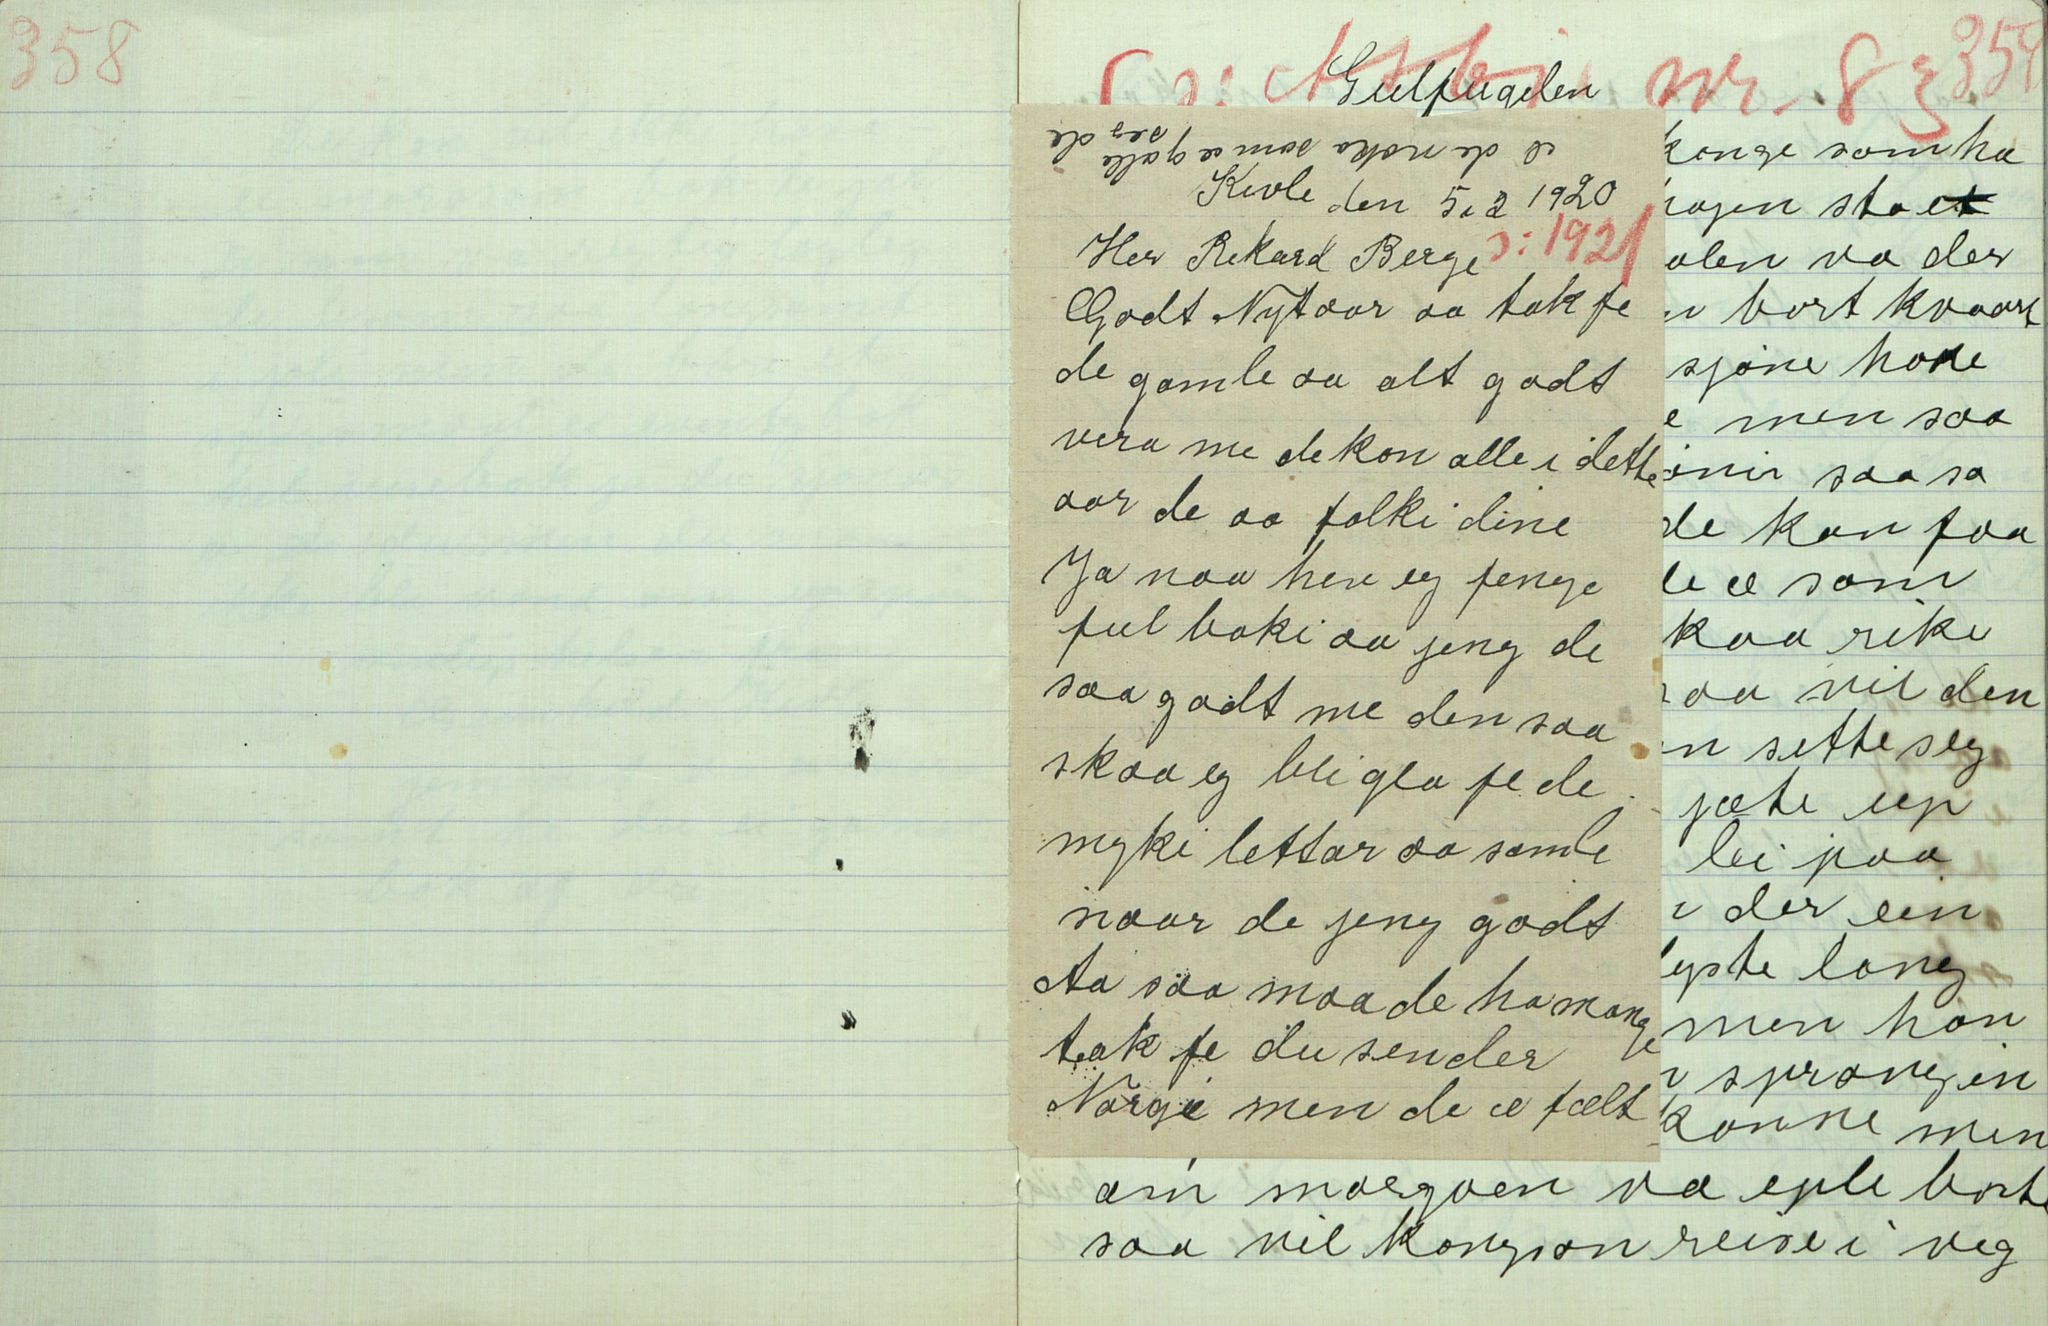 358
359
Gulfugelen
nr. 83
æ de noko som æ gale
seg de
Kivle den 5.2 1920
ɔ: 1921
Her Rikard Berge
Godt Nytaar aa tak fe
de gamle aa alt godt
vera me de kon alle i dette
aar de aa folki dine
Ja naa heve eg fenge
ful boki aa jeng de
saa godt me den saa
skaa eg bli gla fe de
myki lettar aa samle
naar de jeng godt
Aa saa maa de ha mange
tak fe du sender
Norge men de æ fælt
konge som ha
hagen sto et
va der
bort kvaart
sjøne
men saa
saa sa
de kan faa
de æ som
kaa rike
saa vil den
sette seg
jæte up
lei paa
der ein
lyste lang
men han
sprang in
konne men
om morgoen va eple borte
saa vil kongson reise i veg